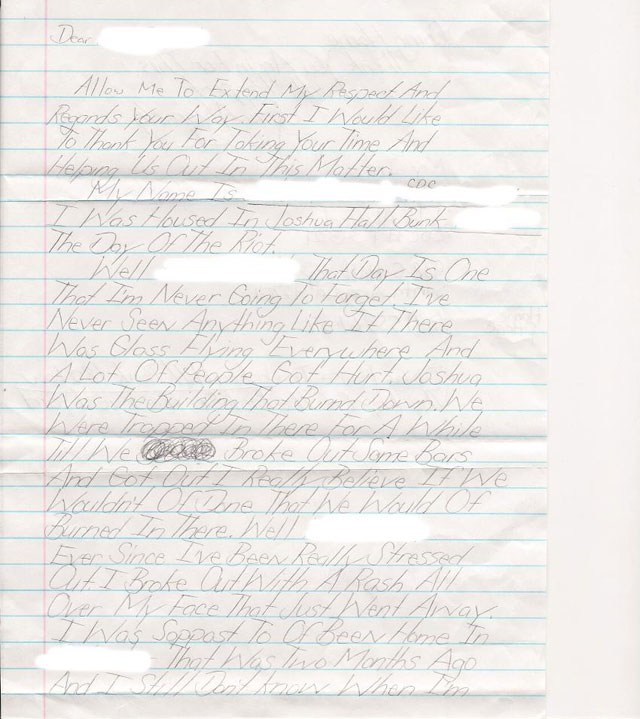 Dear
Allow Me To Extend My Respect And
Regards Your Way. First I Would Like
To Thank You For Taking Your Time And
Helping Us Out In This Matter.
My Name Is CDC
I Was Housed In Joshua Hall Bunk
The Day Of The Riot.
Well That Day Is One
That I'm Never Going To Forget. I've
Never Seen Anything Like It There
Was Glass Flying Everywhere And
A Lot Of People Got Hurt Joshua
Was The Building That Burnd Down. We
Were Trapped In There For A While
Till We Broke Out Some Bars
And Got Out I Really Believe If We
Wouldn't Of Done That We Would Of
Burned In There. Well
Ever Since I've Been Really Stressed
Out I Broke Out With A Rash All
Over My Face That Just Went Away.
I Was Soppast To Of Been Home In
That Was Two Months Ago
And I Still Don't Know When I'm